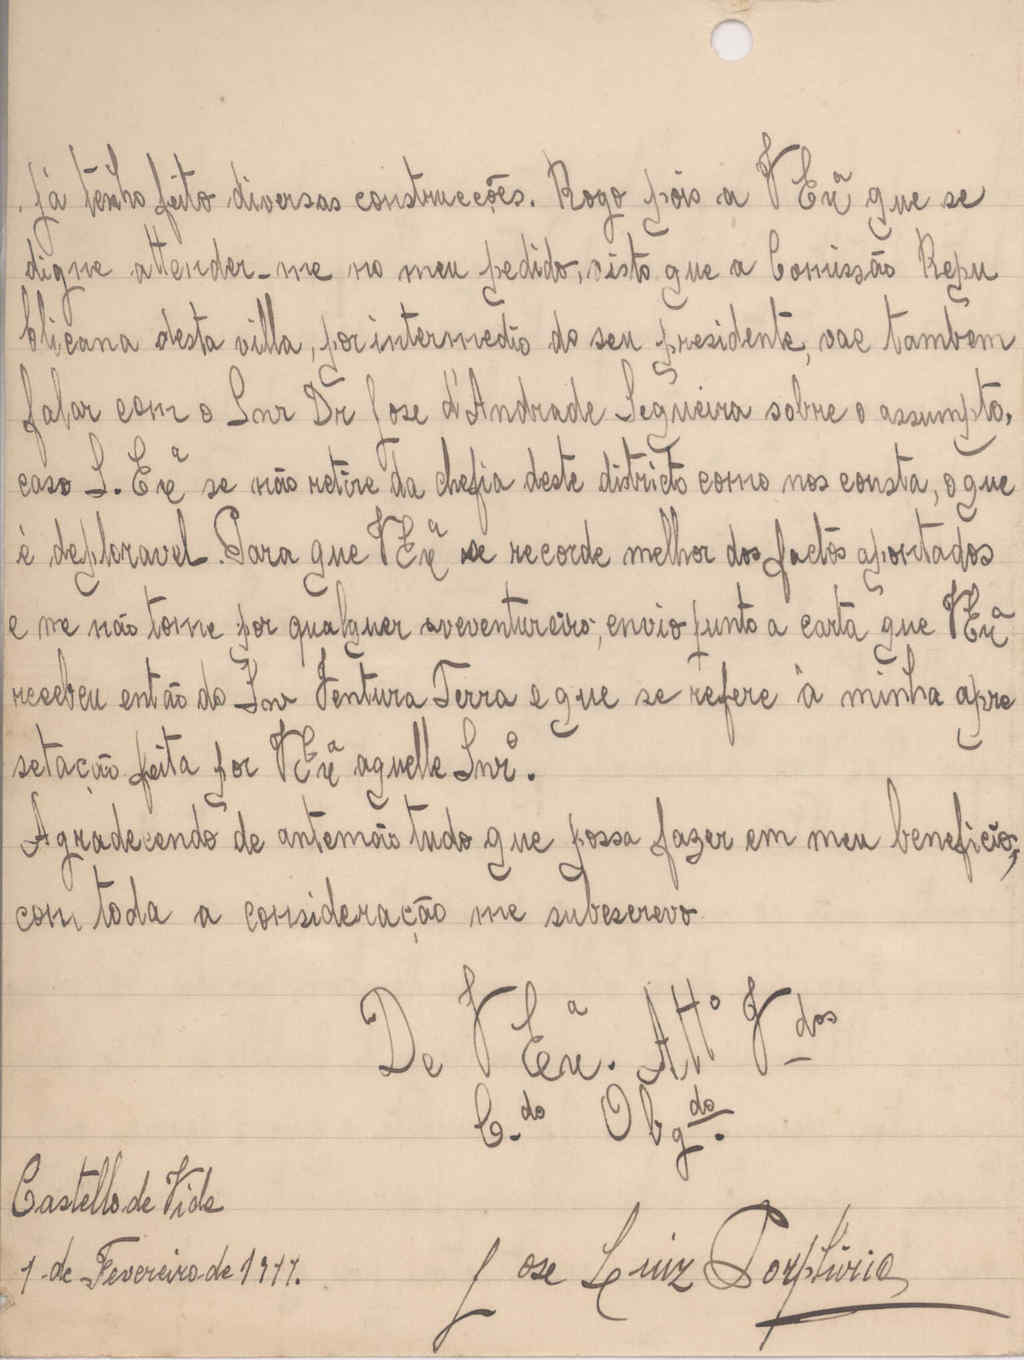 já tenho feito diversas construcções. Rogo pois a V Exª que se
digne attender-me no meu pedido, visto que a Comissão Repu
blicana desta villa, por intermedio do seu presidente, vae tambem
falar com o Snr Dr Jose d'Andrade Sequeira sobre o assumpto,
caso S. Exª se não retire da chefia deste districto como nos consta, o que
é deploravel. Para que V Exª se recorde melhor dos factos apontados
e me não tome por qualquer aveventureiro, envio junto a carta que V Exª
recebeu então do Snr Ventura Terra e que se refere á minha apre
setação feita por V Exª aquelle Snrº.
Agradecendo de antemão tudo que possa fazer em meu beneficio,
com toda a consideração me subescrevo
De V Exª. Attº Vdos
C.do Obgdo.
Castello de Vide
1 de Fevereiro de 1911.
Jose Luiz Porphirio